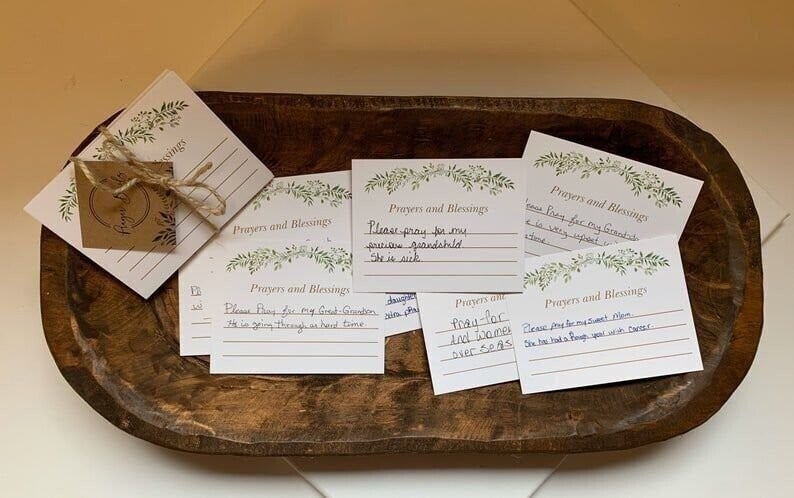 Prayers and Blessings
Please pray for my
precious grandchild.
She is sick.
Prayers and Blessings
Please Pray for my Grandson
is very upset
time.
Prayers and Blessings
Prayers and Blessings
Please Pray for my Great-Grandson.
He is going through as hard time.
daughter
pra
Pray-for
and Women
over seas
Prayers and Blessings
Please pray for my sweet Mom.
She has had a rough year with Cancer.
essings